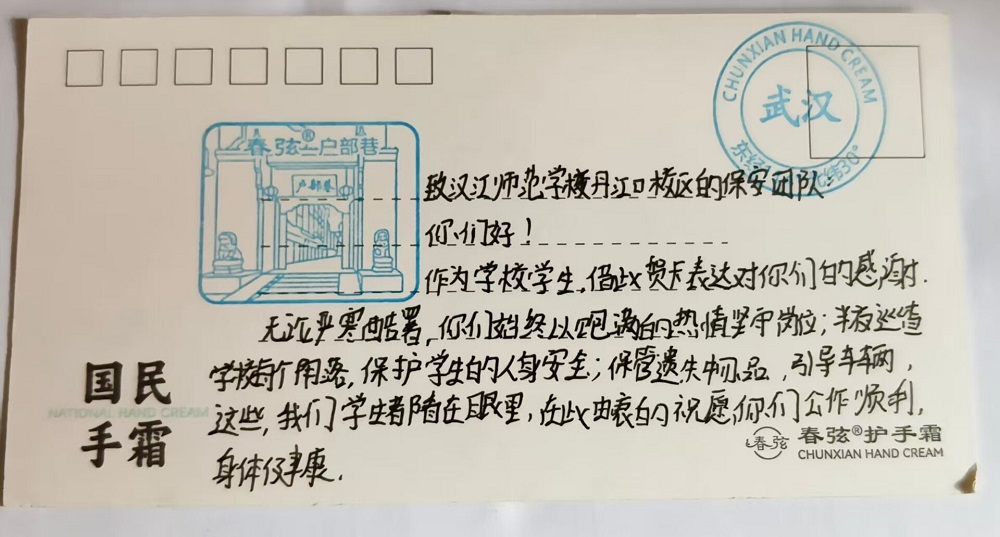 CHUNXIAN HAND CREAM
武汉
春弦®户部巷
户部巷
致汉江师范学校丹江口校区的保安团队:
你们好!
作为学校学生,借此贺卡表达对你们的感谢.
无论严寒酷署,你们始终以饱满的热情坚守岗位;半夜巡查
学校每个角落,保护学生的人身安全;保管遗失物品,引导车辆,
这些,我们学生都看在眼里,在此由衷的祝愿你们工作顺利,
身体健康.
国民
NATIONAL HAND CREAM
手霜
春弦
春弦®护手霜
CHUNXIAN HAND CREAM